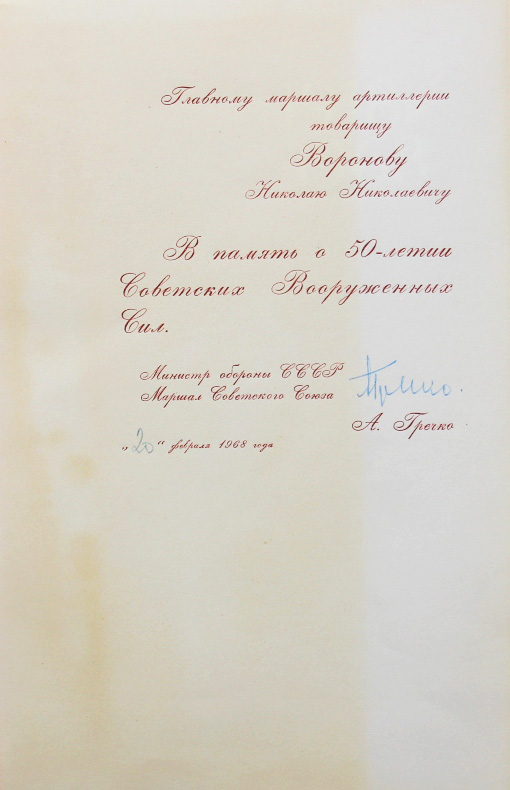 Главному маршалу артиллерии
товарищу
Воронову
Николаю Николаевичу
В память о 50-летии
Советских Вооруженных
Сил.
Министр обороны СССР
Маршал Советского Союза
А. Гречко
„20“ февраля 1968 года